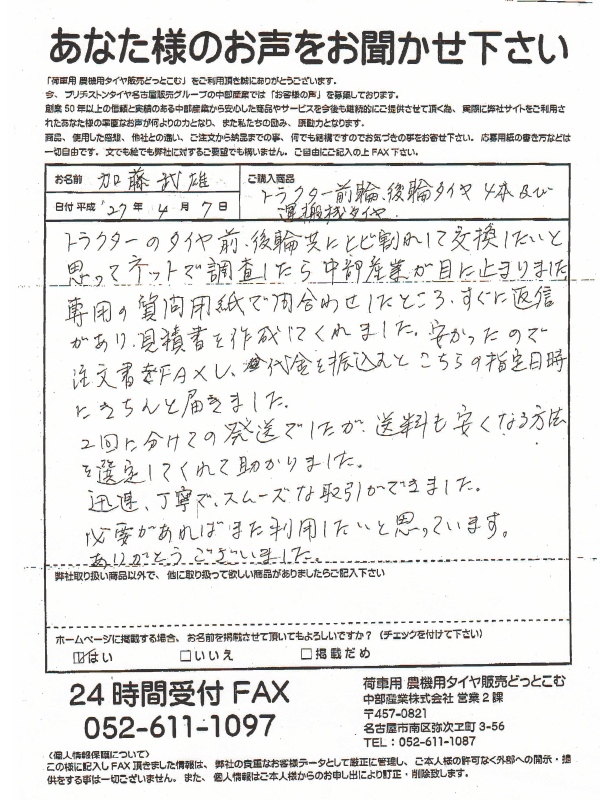 あなた様のお声をお聞かせ下さい
「荷車用 農機用タイヤ販売どっとこむ」をご利用頂き誠にありがとうございます。
今、ブリヂストンタイヤ名古屋販売グループの中部産業では「お客様の声」を募集しております。
創業50年以上の信頼と実績のある中部産業から安心した商品やサービスを今後も継続的にご提供させて頂く為、実際に弊社サイトをご利用さ
れたあなた様の率直なお声が何より力となり、また私たちの励み、原動力となります。
商品、使用した感想、他社との違い、ご注文から納品までの事、何でも結構ですのでお気づきの事をお寄せ下さい。応募用紙の書き方などは
一切自由です。文でも絵でも弊社に対するご要望でも構いません。ご自由にご記入の上FAX下さい。
お名前 加藤武雄
ご購入商品
トラクター前輪、後輪タイヤ4本及び
運搬機タイヤ
日付 平成 '27年 4月 7日
トラクターのタイヤ前、後輪共にヒビ割れして交換したいと
思ってネットで調査したら中部産業が目に止まりました
専用の質問用紙で問合わせしたところ、すぐに返信
があり、見積書を作成してくれました。安かったので
注文書をFAXし、代金を振込むとこちらの指定日時
にきちんと届きました。
2回に分けての発送でしたが、送料も安くなる方法
を選定してくれて助かりました。
迅速、丁寧で、スムーズな取引ができました。
必要があればまた利用したいと思っています。
ありがとうございました。
弊社取り扱い商品以外で、他に取り扱って欲しい商品がありましたらご記入下さい
ホームページに掲載する場合、お名前を掲載させて頂いてもよろしいですか？（チェックを付けて下さい）
☑はい □いいえ □掲載だめ
24時間受付 FAX
052-611-1097
荷車用 農機用タイヤ販売どっとこむ
中部産業株式会社 営業2課
〒457-0821
名古屋市南区弥次ヱ町3-56
TEL：052-611-1087
〈個人情報保護について〉
この様に記入しFAX頂きました情報は、弊社の貴重なお客様データとして厳正に管理し、ご本人様の許可なく外部への開示・提
供をする事は一切ございません。また、個人情報はご本人様からのお申し出により訂正・削除致します。